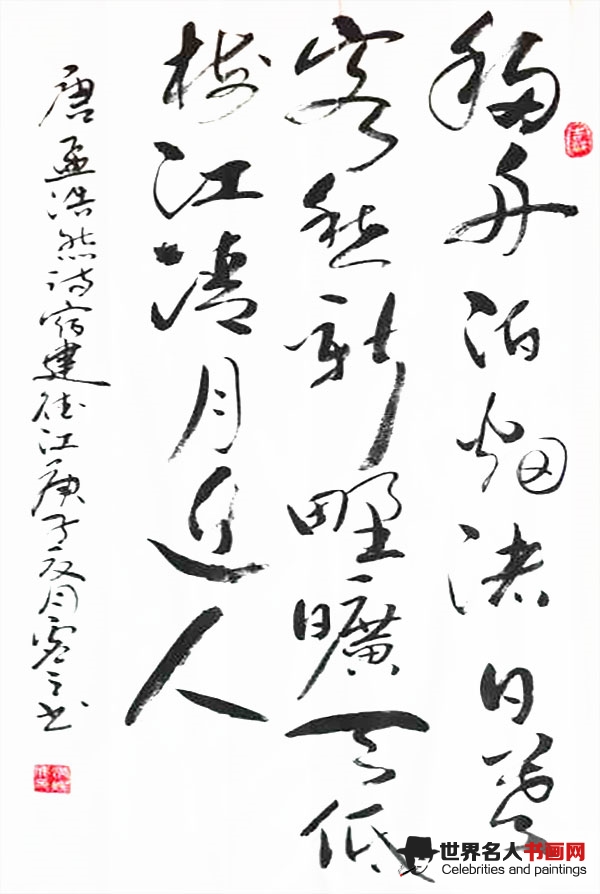 移舟泊烟渚日暮
客愁新野曠天低
树江清月近人
唐孟浩然诗宿建德江庚子夏月之书
世界名人书画网
Celebrities and paintings